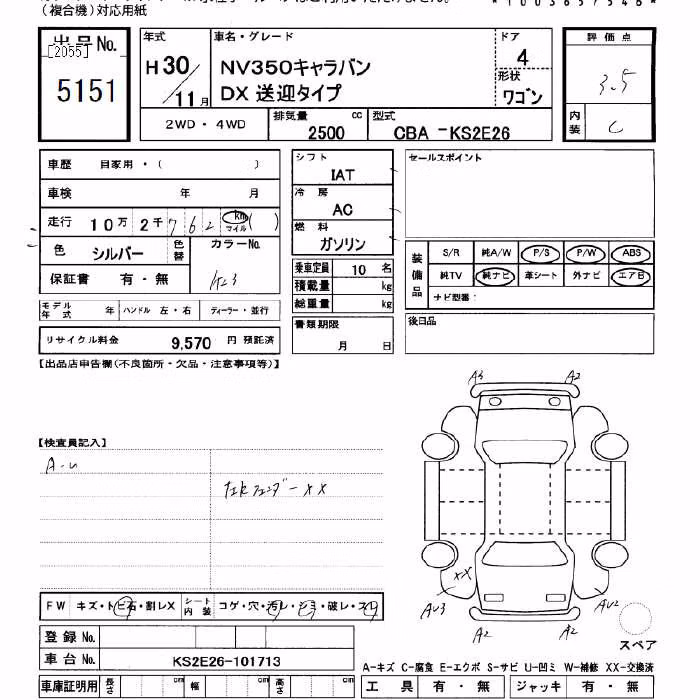 (複合機)対応用紙
出品No.
[2055]
5151
年式
H30/11月
車名・グレード
NV350キャラバン
DX 送迎タイプ
ドア
4
形状
ワゴン
評価点
3.5
内装
C
2WD・4WD
排気量
2500
cc
型式
CBA -KS2E26
車歴 自家用・( )
車検 年 月
走行 10万 2千 7 6 2 km マイル ( )
色 シルバー
色替
カラーNo.
保証書 有・無
モデル年式 年
ハンドル 左・右
ディーラー・並行
リサイクル料金 9,570 円 預託済
シフト
IAT
冷房
AC
燃料
ガソリン
乗車定員 10 名
積載量 kg
総重量 kg
書類期限
月 日
セールスポイント
装備品
S/R 純A/W P/S P/W ABS
純TV 純ナビ 革シート 外ナビ エアB
ナビ型番:
後日品
【出品店申告欄(不良箇所・欠品・注意事項等)】
【検査員記入】
A-U
XX
FW キズ・トビ石・割レX
シート内装 コゲ・穴・汚レ・シミ・破レ・スレ
登録No.
車台No. KS2E26-101713
車庫証明用 長さ cm 幅 cm 高さ cm
A3
A2
XX
AU3
AU2
A2
A2
スペア
A-キズ C-腐食 E-エクボ S-サビ U-凹ミ W-補修 XX-交換済
工具 有・無 ジャッキ 有・無